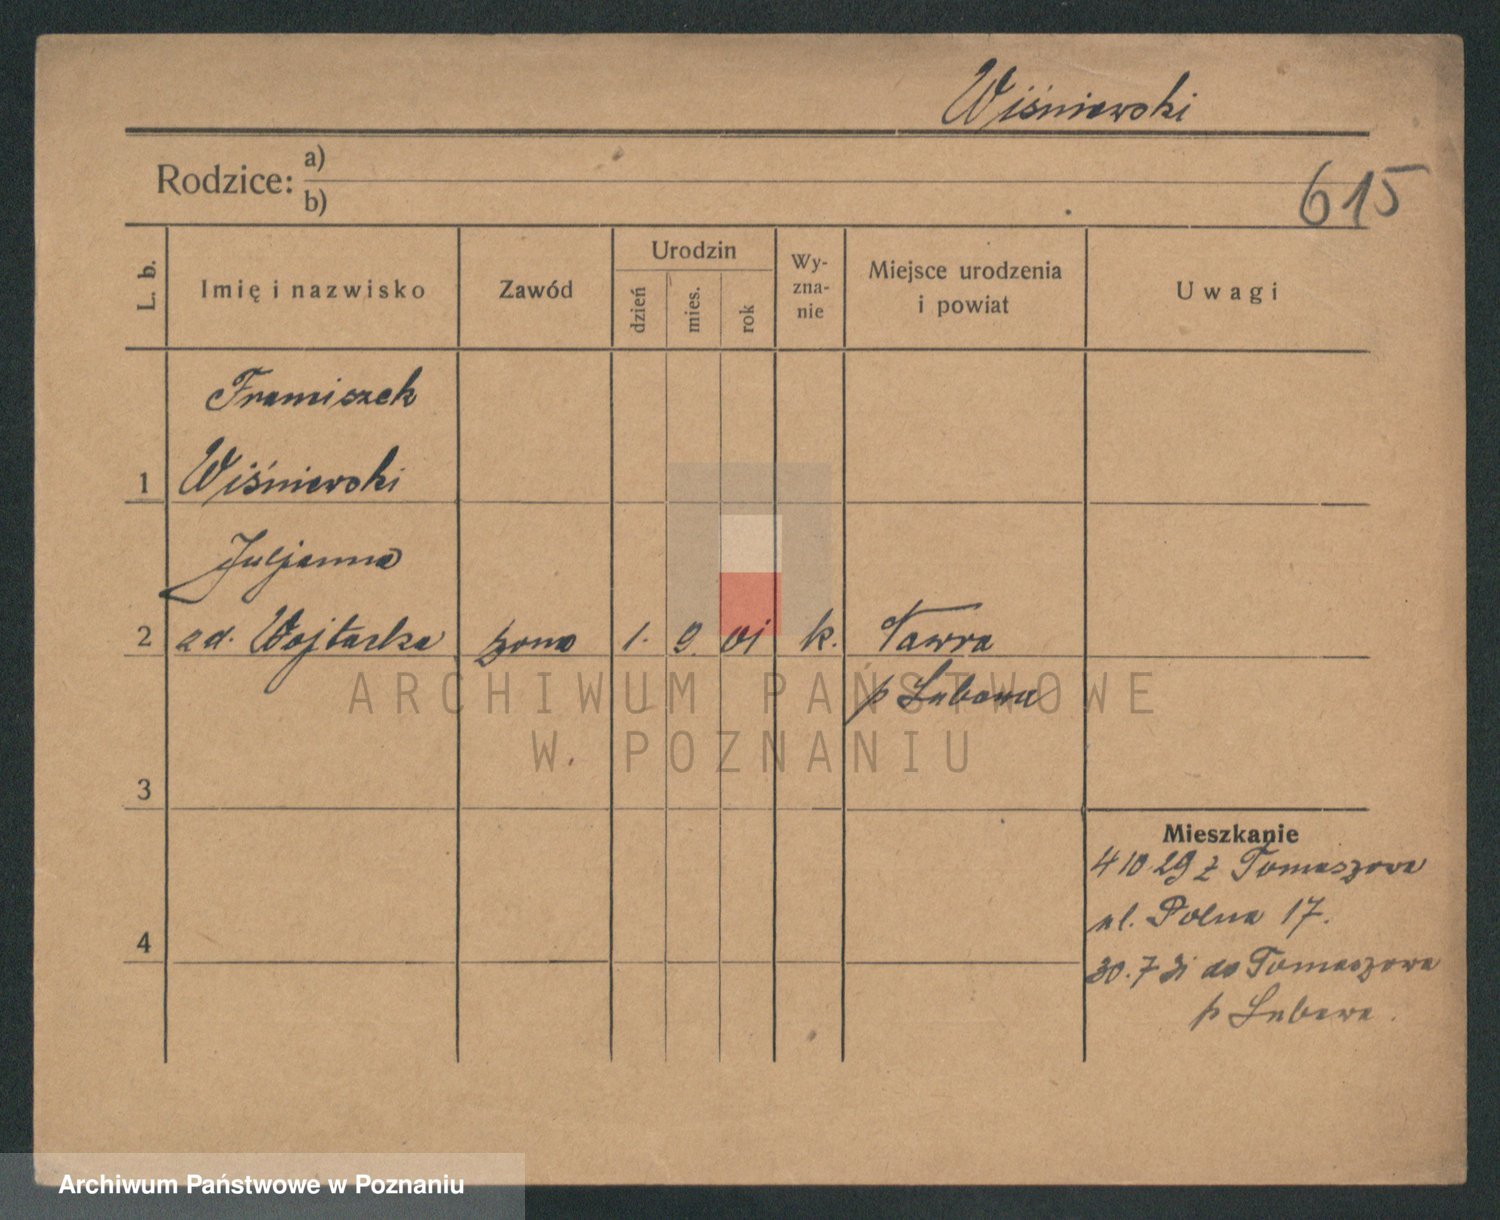 Wiśniewski
Rodzice: a)
b)
615
L. b.
Imię i nazwisko
Zawód
Urodzin
dzień
mies.
rok
Wy-
zna-
nie
Miejsce urodzenia
i powiat
Uwagi
Franciszek
1 Wiśniewski
Juljanna
2 zd. żona 1. 9. 01 k. Tawra
p Lubawa
ARCHIWUM PAŃSTWOWE
W POZNANIU
3
Mieszkanie
4 10 29 z Tomaszowa
ul. Polna 17.
4
30. 7 31 do Tomaszowa
p Lubawa.
Archiwum Państwowe w Poznaniu